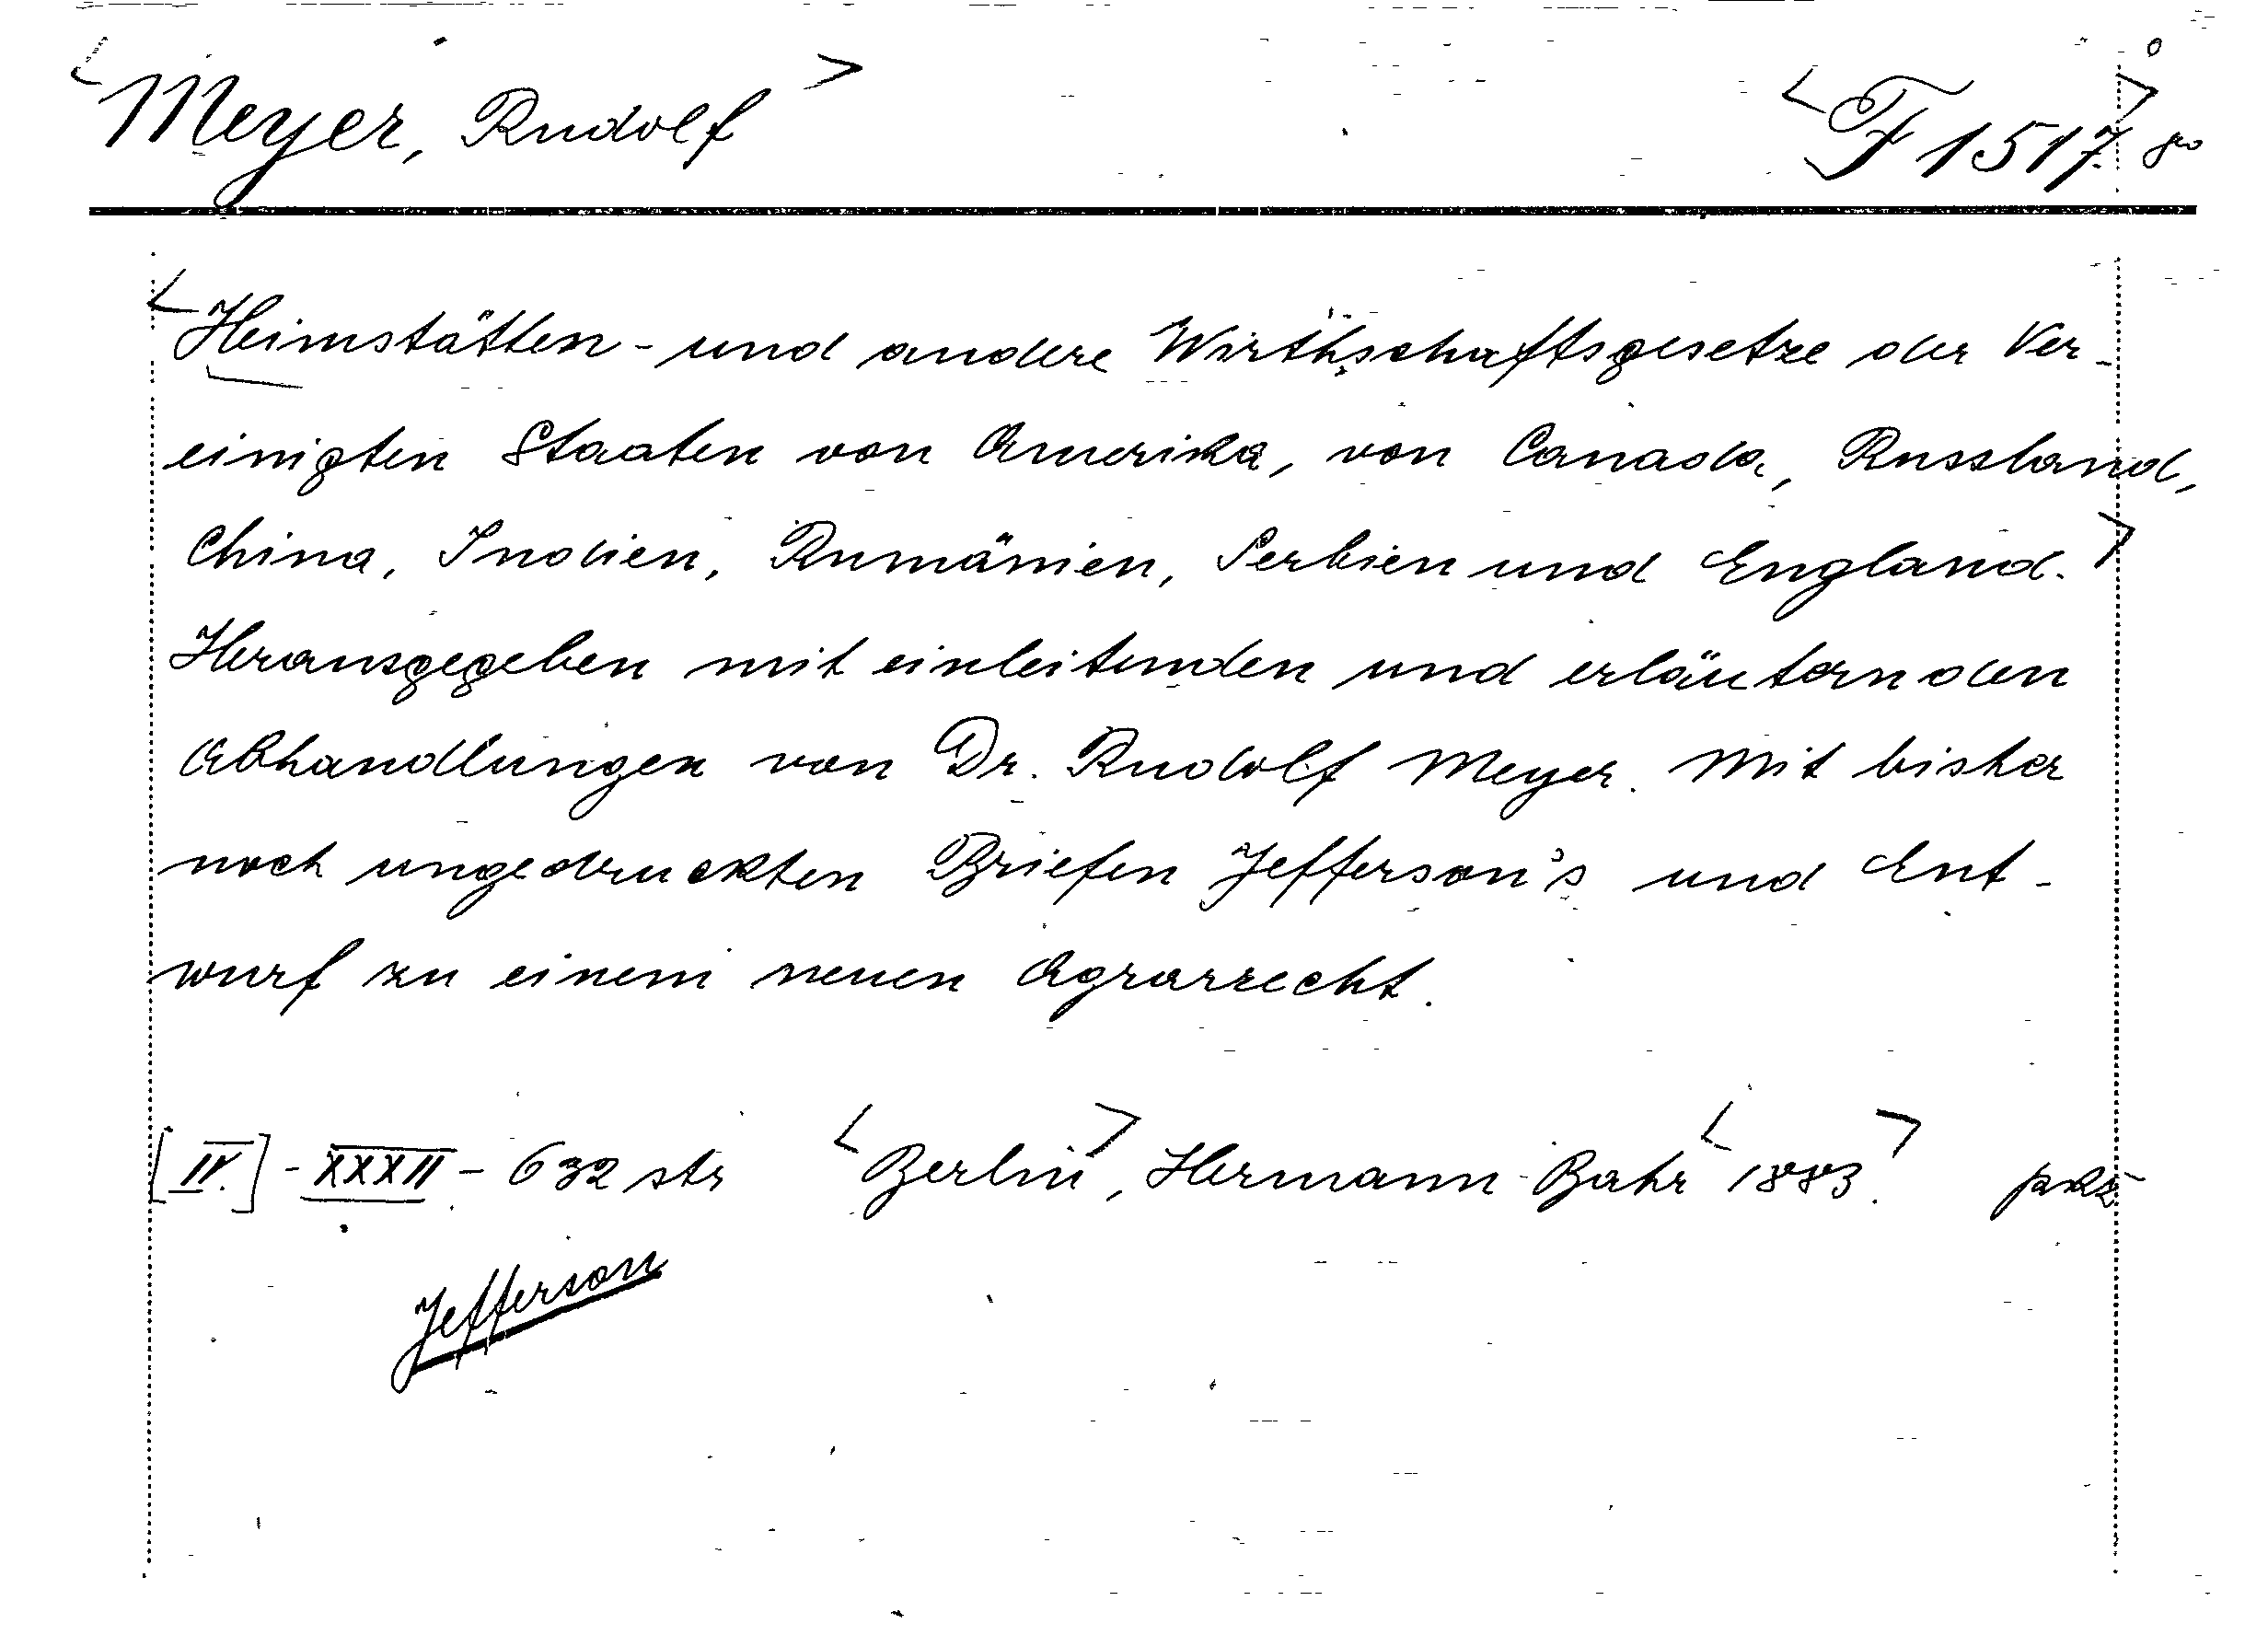 <Meyer, Rudolf> <F 1517> 8°
<Heimstätten- und andere Wirthschaftsgesetze der Ver-
einigten Staaten von Amerika, von Canada, Russland,
China, Indien, Rumänien, Serbien und England.>
Herausgegeben mit einleitenden und erläuternden
Abhandlungen von Dr. Rudolf Meyer. Mit bisher
noch ungedruckten Briefen Jefferson's und Ent-
wurf zu einem neuen Agrarrecht.
[IV.] - XXXII - 632 str <Berlin>, Hermann Bahr <1883.>
Jefferson